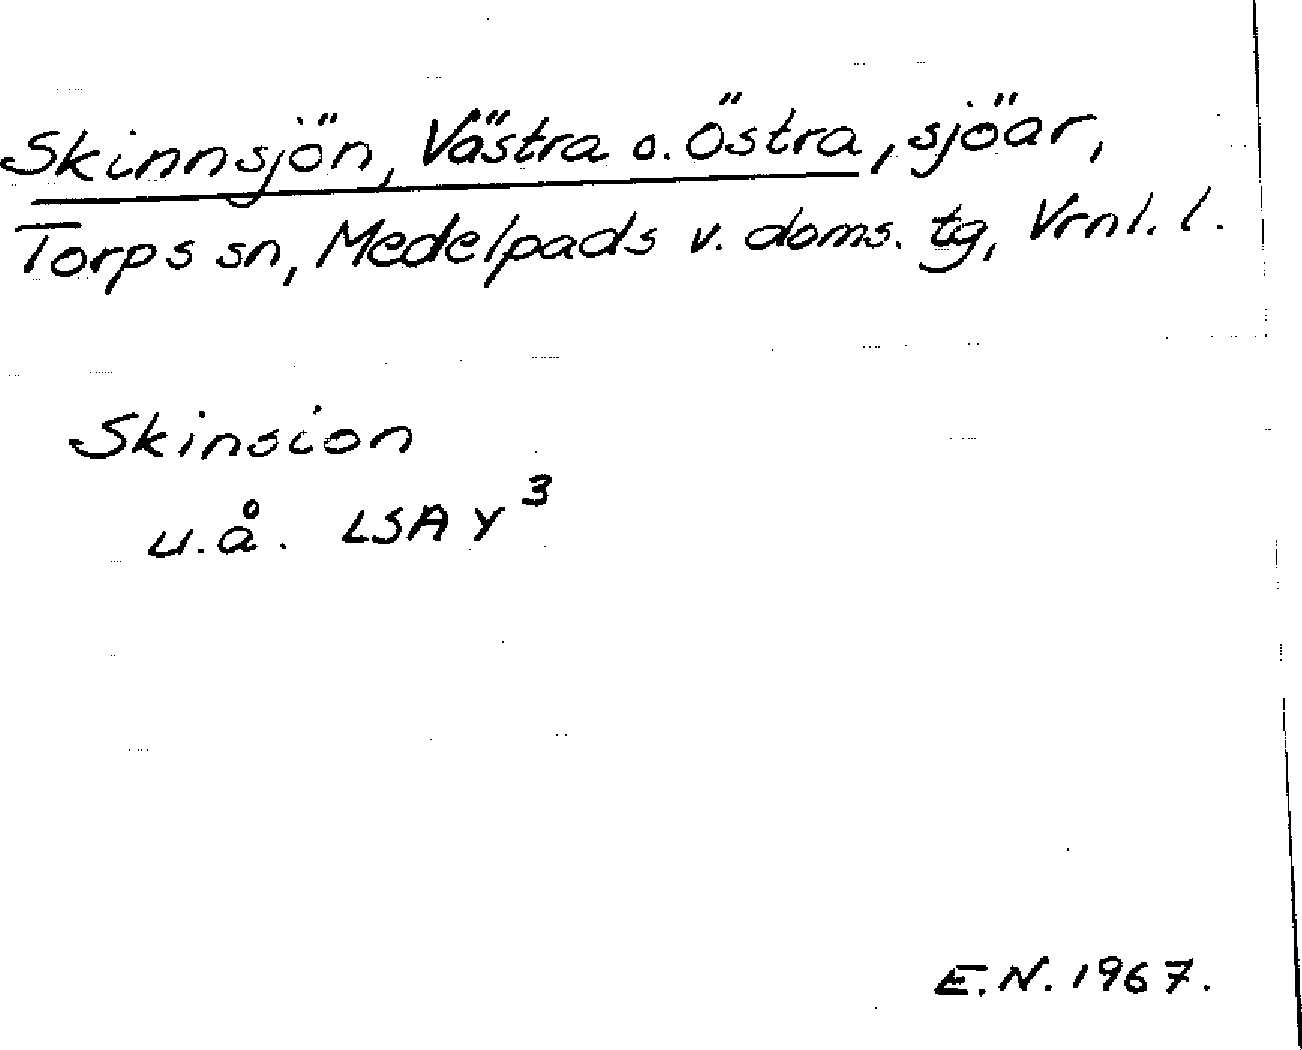 Skinnsjön, Västra o. Östra, sjöar,
Torps sn, Medelpads v. doms. tg, Vrnl. l.
Skinsion
u.å. LSA Y³
E.N. 1967.